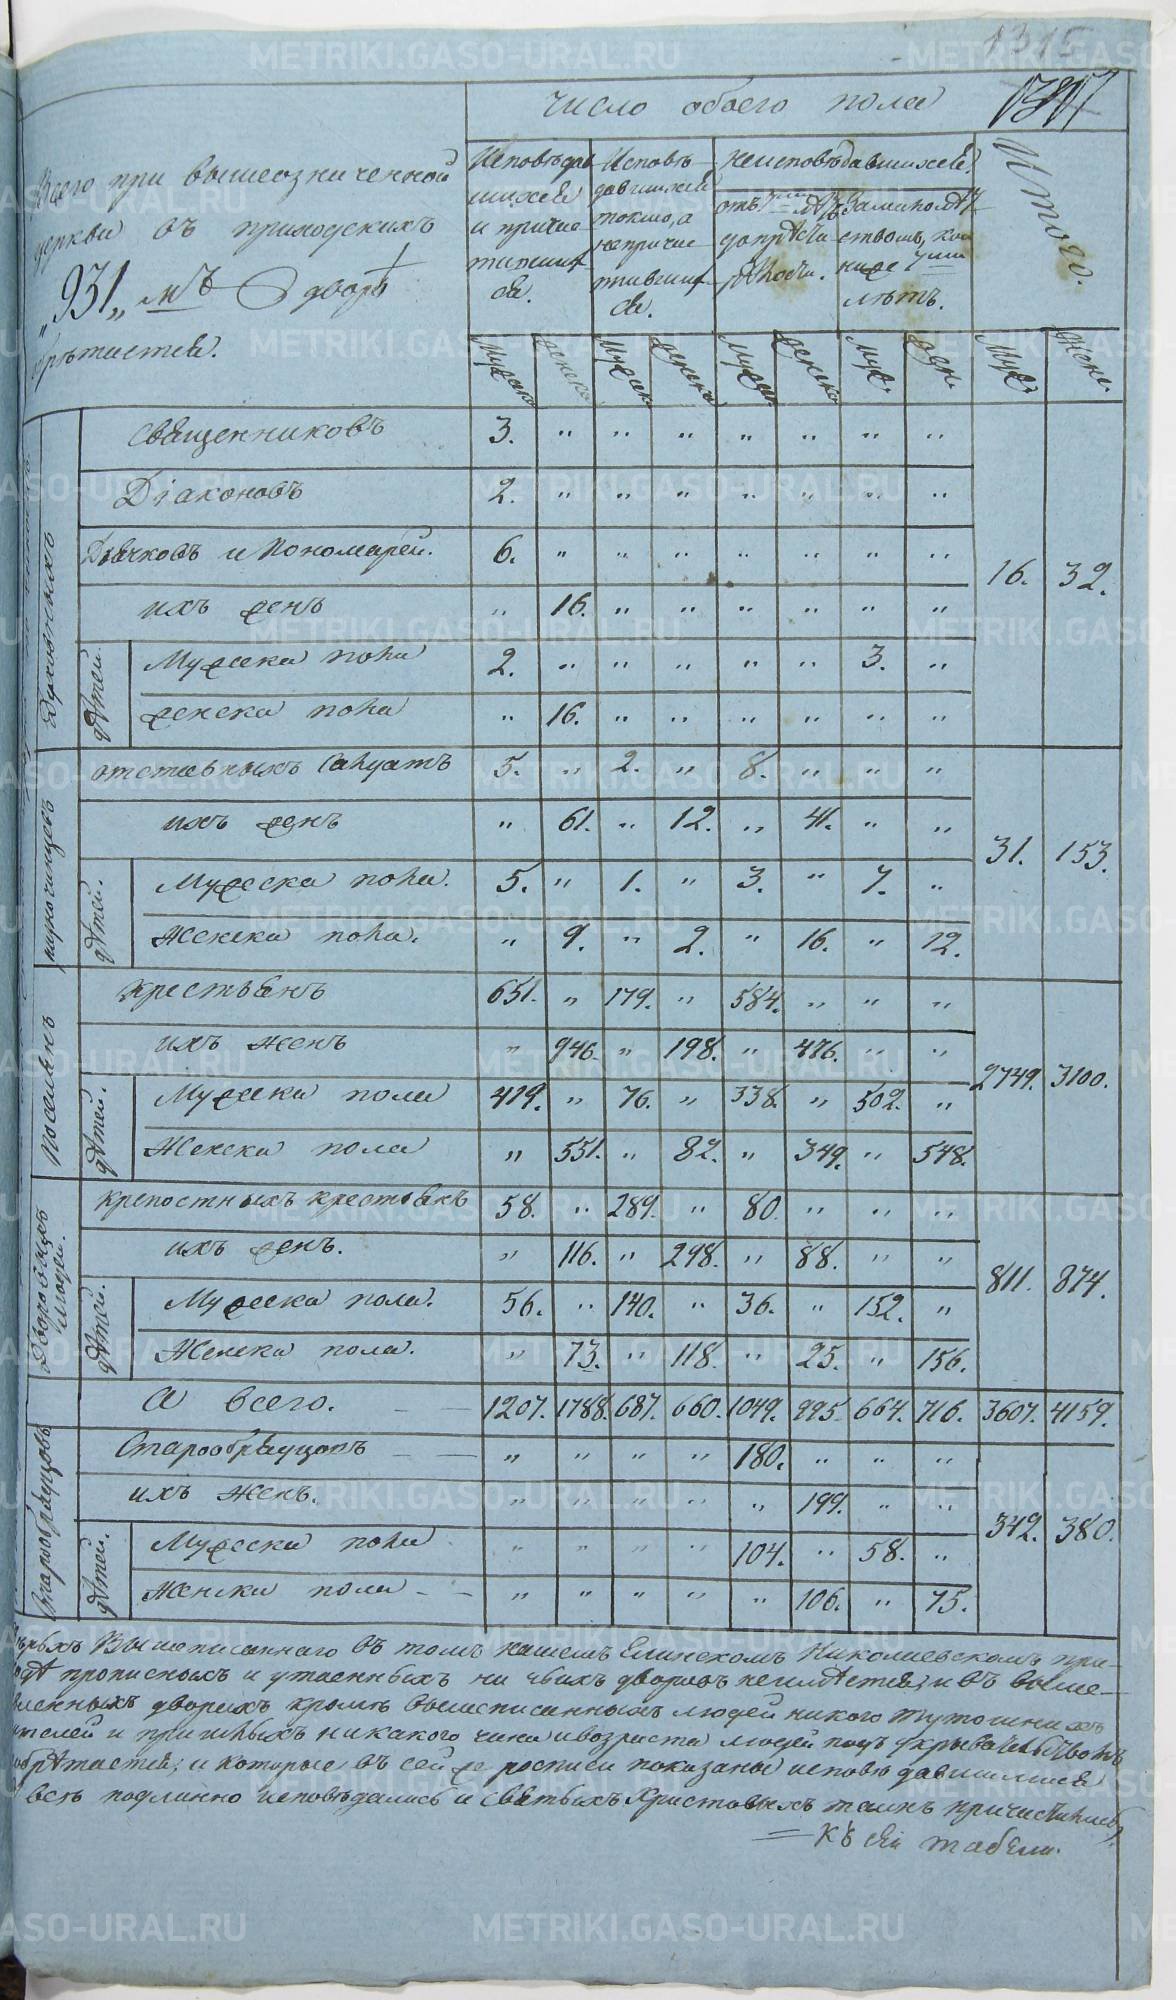 1315
число обоего пола
Всего при вышеозначенной
церкви въ приходскихъ
„931„ мъ дворѣ
обрѣтается.
Исповѣдав
шихся
и причас
тивших
ся.
Исповѣ
давшихся
токмо, а
непричас
тивших
ся.
Неисповѣдавшихся.
отъ 7ми лѣтъ
до прѣста
рѣлости.
За малолѣт
ствомъ, кои
ниже 7ми
лѣтъ.
Итого.
Мужска женска Мужска женска Мужска женска Муж. жен. Муж. Женс.
Духовныхъ
Священниковъ 3. „ „ „ „ „ „ „
Діаконовъ 2. „ „ „ „ „ „ „
Дьячковъ и Пономарей. 6. „ „ „ „ „ „ „ 16. 32.
ихъ женъ „ 16. „ „ „ „ „ „
дѣтей.
Мужеска пола 2. „ „ „ „ „ 3. „
женска пола „ 16. „ „ „ „ „ „
отставныхъ Салдатъ 5. „ 2. „ 8. „ „ „
ихъ женъ „ 61. „ 12. „ 41. „ „
31. 153.
дѣтей.
Мужеска пола. 5. „ 1. „ 3. „ 7. „
Женска пола. „ 9. „ 2. „ 16. „ 12.
Поселянъ
крестьянъ 651. „ 179. „ 584. „ „ „
ихъ женъ „ 946. „ 198. „ 476. „ „
2749. 3100.
дѣтей.
Мужеска пола 419. „ 76. „ 338. „ 502. „
Женска пола „ 551. „ 82. „ 349. „ 548.
Дворовыхъ
людей.
крепостныхъ крестьянъ 58. „ 289. „ 80. „ „ „
ихъ женъ. „ 116. „ 298. „ 88. „ „
811. 874.
дѣтей.
Мужеска пола. 56. „ 140. „ 36. „ 152. „
Женска пола. „ 73. „ 118. „ 25. „ 156.
А всего. 1207. 1788. 687. 660. 1049. 995. 664. 716. 3607. 4159.
Старобрядцовъ
Старообрядцовъ „ „ „ „ 180. „ „ „
ихъ Женъ. „ „ „ „ „ 199. „ „
342. 380.
дѣтей.
Мужеска пола „ „ „ „ 104. „ 58. „
Женска пола „ „ „ „ „ 106. „ 75.
Вышеписаннаго въ томъ нашемъ Елинскомъ Николаевскомъ при-
прописныхъ и утаенныхъ ни чьихъ дворовъ неимѣется; и въ выше-
дворахъ кромѣ вышеписанныхъ людей никого тутошнихъ
жителей и пришлыхъ никакого чина и возраста людей подъ укрывательствомъ
обрѣтается; и которые въ сей же росписи показаны исповѣдавшимися
всѣ подлинно исповѣдались и Святыхъ Христовыхъ таинъ причастились.
= къ сей табели.
METRIKI.GASO-URAL.RU